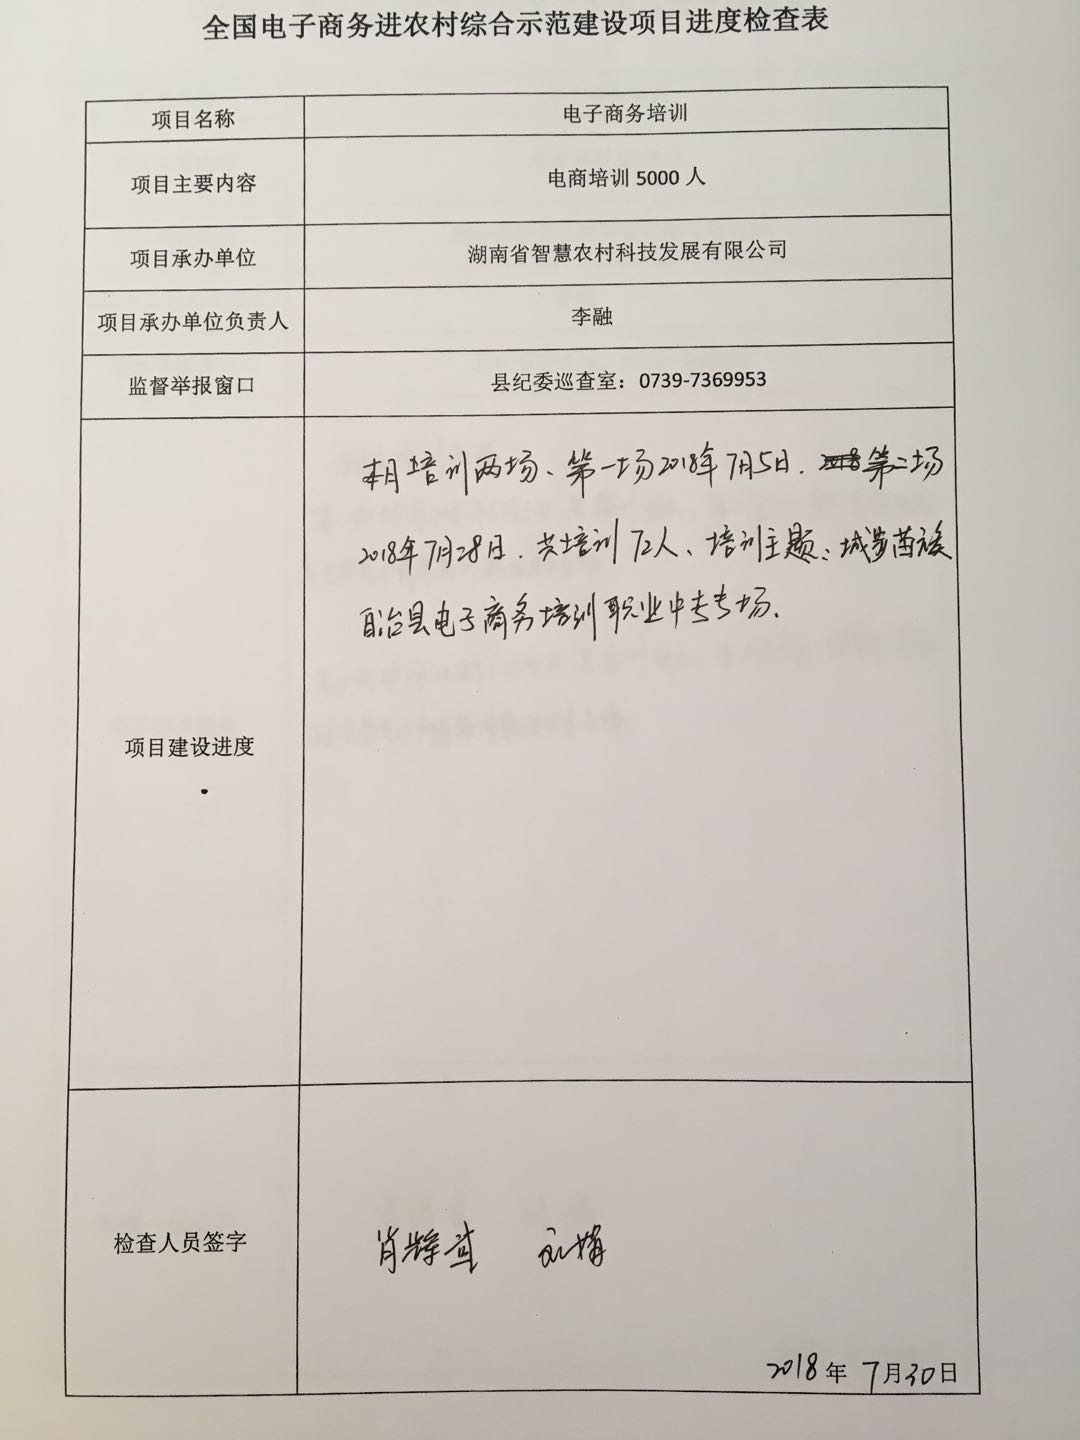 全国电子商务进农村综合示范建设项目进度检查表
项目名称
电子商务培训
项目主要内容
电商培训 5000 人
项目承办单位
湖南省智慧农村科技发展有限公司
项目承办单位负责人
李融
监督举报窗口
县纪委巡查室：0739-7369953
项目建设进度
本月培训两场、第一场2018年7月5日. 第二场
2018年7月28日. 共培训72人、培训主题：城步苗族
自治县电子商务培训职业中专专场.
检查人员签字
肖
2018 年 7 月 30 日